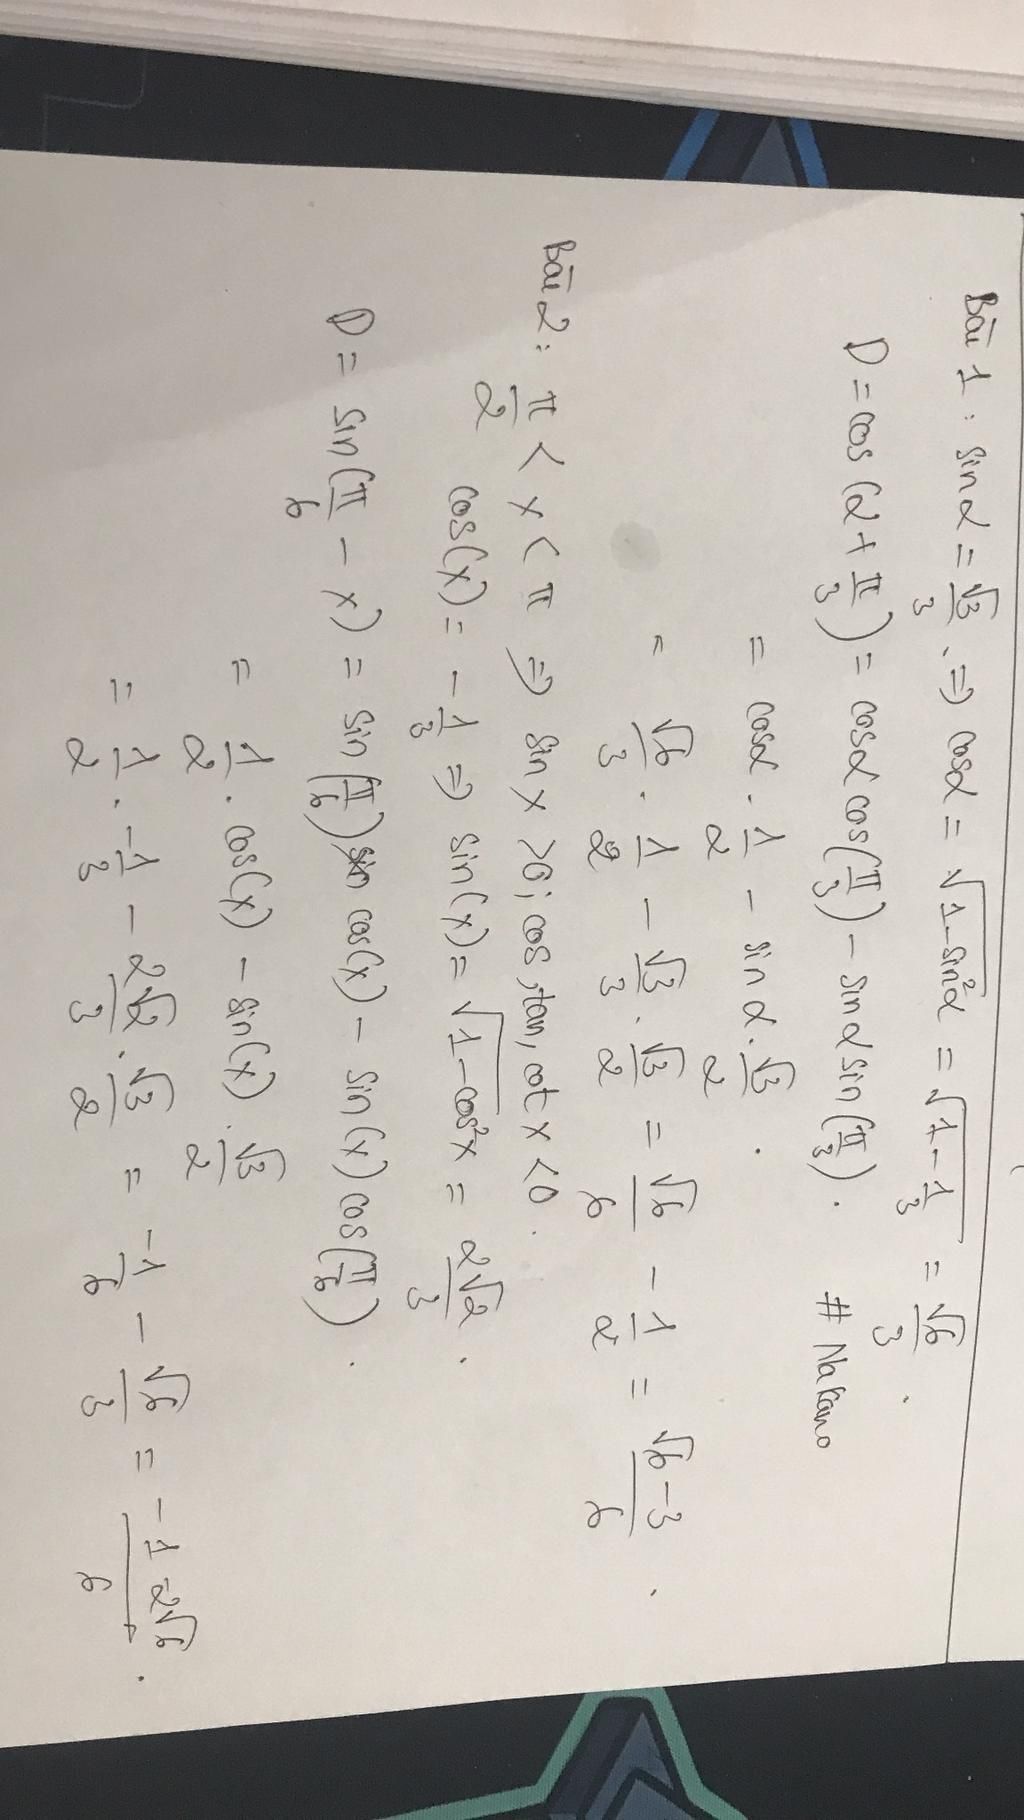 Bài 1 : sin α = √3/3 . ⇒ cosα = √(1-sin²α) = √(1-1/3) = √6/3 .
D = cos (α + π/3) = cosα cos(π/3) - sin α sin (π/3) . # Nakano
= cosα . 1/2 - sin α . √3/2 .
= √6/3 . 1/2 - √3/3 . √3/2 = √6/6 - 1/2 = (√6-3)/6 .
Bài 2 : π/2 < x < π ⇒ sin x >0; cos, tan, cot x <0 .
cos(x) = -1/3 ⇒ sin(x) = √(1-cos²x) = 2√2/3 .
D = sin(π/6 - x) = sin(π/6) cos(x) - sin(x) cos(π/6) .
= 1/2 . cos(x) - sin(x) . √3/2
= 1/2 . -1/3 - 2√2/3 . √3/2 = -1/6 - √6/3 = (-1-2√6)/6 .